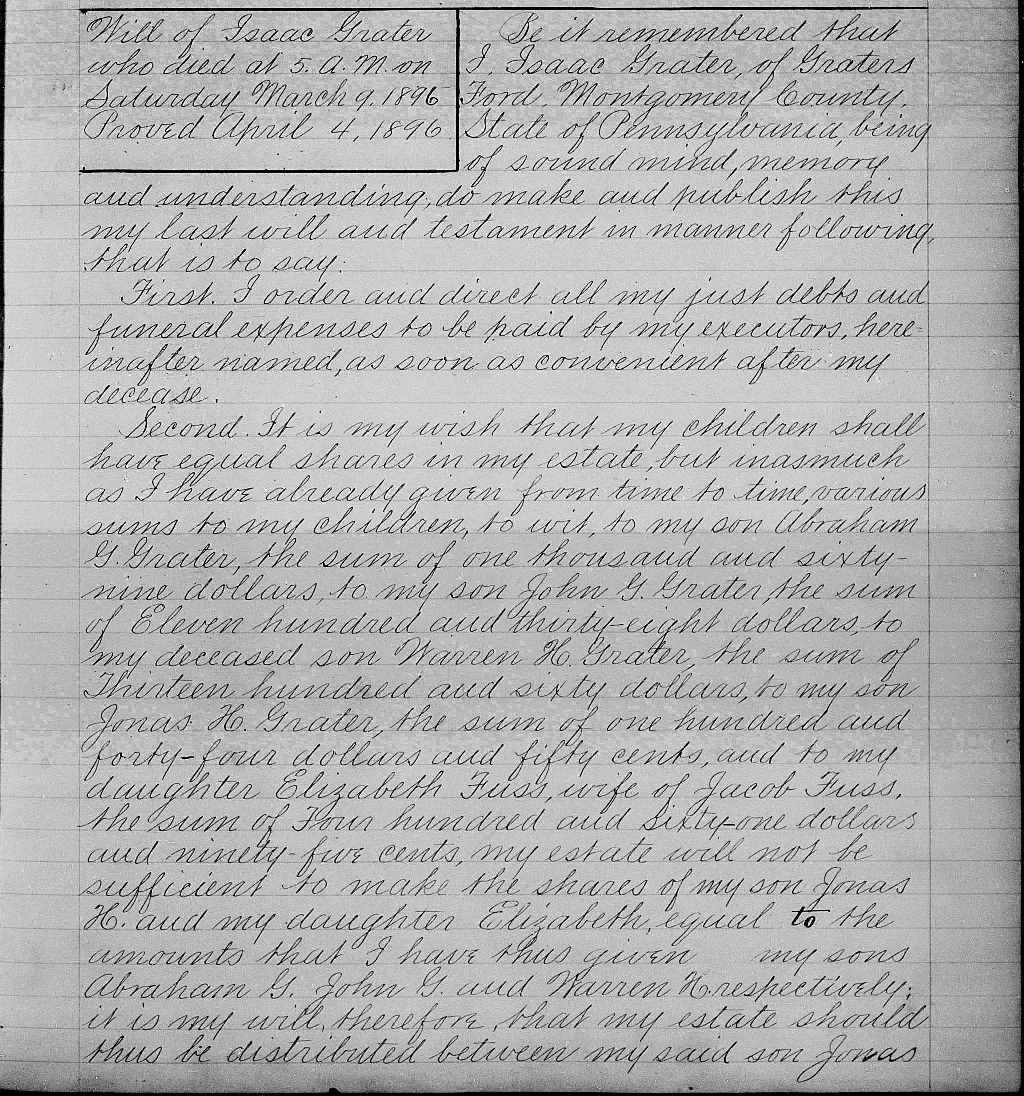 Will of Isaac Grater
who died at 5. A. M. on
Saturday March 9. 1896
Proved April 4, 1896
Be it remembered that
I, Isaac Grater, of Graters
Ford, Montgomery County,
State of Pennsylvania, being
of sound mind, memory
and understanding, do make and publish this
my last will and testament in manner following,
that is to say:
First. I order and direct all my just debts and
funeral expenses to be paid by my executors, here=
inafter named, as soon as convenient after my
decease.
Second. It is my wish that my children shall
have equal shares in my estate, but inasmuch
as I have already given from time to time, various
sums to my children, to wit, to my son Abraham
G. Grater, the sum of one thousand and sixty-
nine dollars, to my son John G. Grater, the sum
of Eleven hundred and thirty-eight dollars, to
my deceased son Warren H. Grater, the sum of
Thirteen hundred and sixty dollars, to my son
Jonas H. Grater, the sum of one hundred and
forty-four dollars and fifty cents, and to my
daughter Elizabeth Fuss, wife of Jacob Fuss,
the sum of Four hundred and sixty-one dollars
and ninety-five cents, my estate will not be
sufficient to make the shares of my son Jonas
H. and my daughter Elizabeth, equal to the
amounts that I have thus given my sons
Abraham G. John G. and Warren H. respectively;
it is my will, therefore, that my estate should
thus be distributed between my said son Jonas